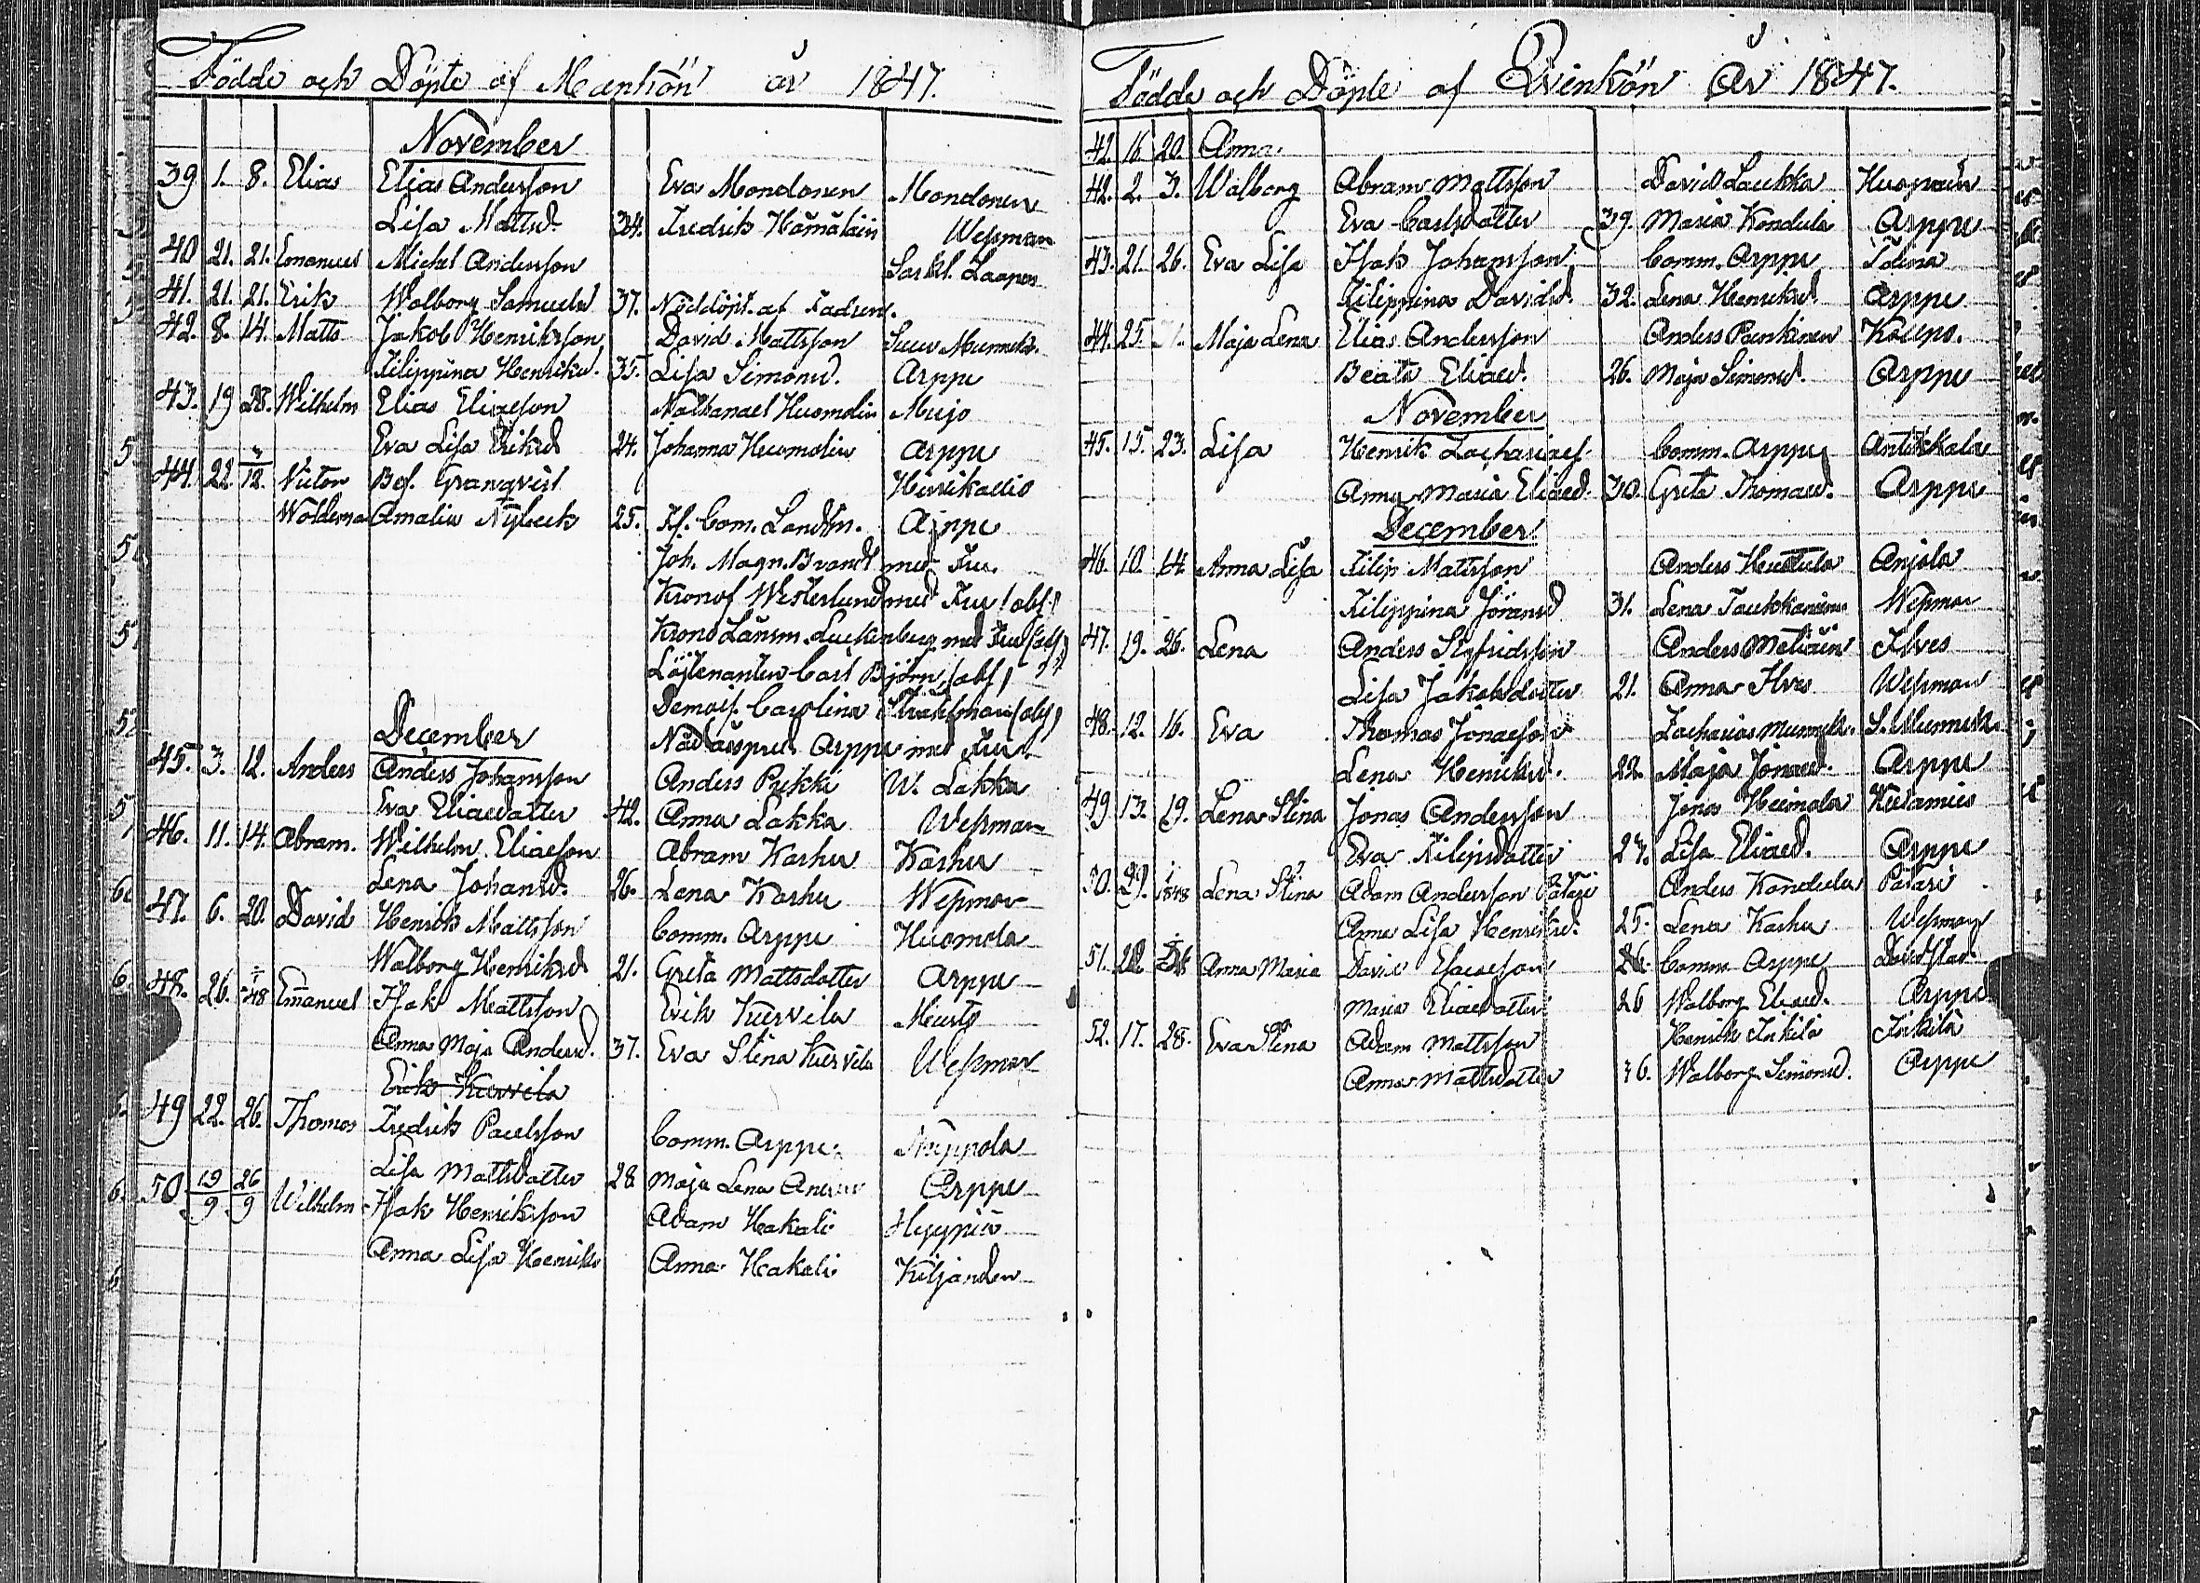 Födde och Döpte af Mankön år 1847.
November
39 1. 8. Elias Elias Andersson Eva Mondonen Mondonen
Lisa Mattsd. 34. Fredrik Hämäläin Wessman
40 21. 21. Emanuel Michel Andersson Laapas
41. 21. 21. Erik Walborg Samuelsd 37. Nöddöpt. af Fadren.
42. 8. 14. Matts Jakob Henriksson David Mattsson Suur
Filippina Henriksd. 35. Lisa Simonsd. Arppe
43. 19 28. Wilhelm Elias Eliasson Nathanael Huomolin Mujo
Eva Lisa Eriksd 24. Johanna Huomolin Arppe
44. 22. 12. Victor Bef. Granqvist
Woldemar Amalia Nybeck 25. Kf. Com. Landtm. Arppe
Joh. Magn. Brandt med Fru.
Kronof Westerlund med Fru (abs:)
Krono Länsm. Luckenberg med Fru (abs)
Löjtenanten Carl Björn (abs)
Demois. Carolina (abs)
December
Nådårspred. Arppe med Fru
45. 3. 12. Anders Anders Johansson Anders Pukki W. Lakka
Eva Eliaedotter 42. Anna Lakka Wessman
46. 11. 14. Abram. Wilhelm Eliaeson Abram Karhu Karhu
Lena Johansd. 26. Lena Karhu Wessman
47. 6. 20. David Henrik Mattsson Comm. Arppe Huomola
Walborg Henriksd 21. Greta Mattsdotter Arppe
48. 26. 48 Emanuel Isak Mattsson Erik Kurvila
Anna Maja Andersd. 37. Eva Stina Kurvila Wessman
Erik Kurvila
49 22. 26. Thomas Fredrik Paulsson Comm. Arppe
Lisa Mattsdotter 28 Maja Lena Arppe
50 19/9 26/9 Wilhelm Isak Henriksson Adam Hakali Hyypiä
Anna Lisa Henriks Anna Hakali Kiljander
Födde och Döpte af Qvinkön År 1847.
42. 16. 20. Anna.
42. 2. 3. Walborg Abram Mattsson David Laukka
Eva Carlsdotter 39. Maria Kondula Arppe
43. 21. 26. Eva Lisa Isak Johansson Comm. Arppe
Filippina Davidsd. 32. Lena Henriksd. Arppe
44. 25. 31. Maja Lena Elias Andersson Anders Punkinen
Beata Eliaed. 26. Maja Simonsd. Arppe
November
45. 15. 23. Lisa Henrik Zachariaes. Comm. Arppe Anttikkala
Anna Maria Eliaed. 30. Greta Thomasd. Arppe
December
46. 10. 14. Anna Lisa Filip Mattsson Anders Huttula Anjala
Filippina Jöransd 31. Lena Wessman
47. 19. 26. Lena Anders Sigfridsson Anders Metiäin Ilves
Lisa Jakobsdotter 21. Anna Ilves Wessman
48. 12. 16. Eva Thomas Jonaeson Zacharias Munnuk. S. Munnuk.
Lena Henriksd. 22. Maja Jonaed. Arppe
49 13. 19. Lena Stina Jonas Andersson Jonas Heimola
Eva Filipsdotter 27. Lisa Eliaed. Arppe
50. 29. 1/1848 Lena Stina Adam Andersson Patari Anders Kondula Patari
Anna Lisa Henriksd. 25. Lena Karhu Wessman
51. 28. Anna Maria David Esaiaeson 26. Comm Arppe
Maria Eliaedotter 26 Walborg Eliaed. Arppe
52. 17. 28. Eva Stina Adam Mattsson Henrik Inkilä Inkilä
Anna Mattsdotter 36. Walborg Simonsd. Arppe